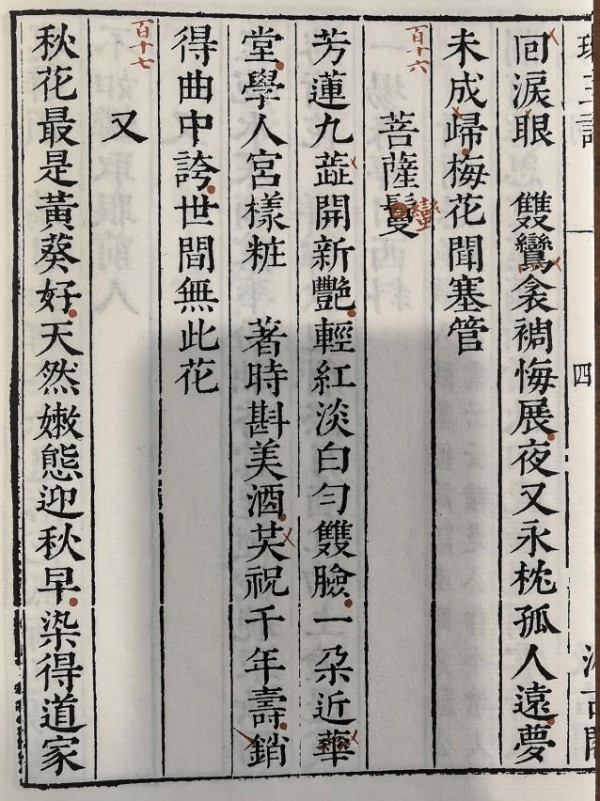 四
囘淚眼　雙鸞衾裯悔展夜又永枕孤人遠夢
未成歸梅花聞塞管
百十六
菩薩鬘
蠻
芳蓮九蘂開新艷輕紅淡白勻雙臉一朶近華
堂學人宮樣粧　著時斟美酒共祝千年壽銷
得曲中誇世間無此花
百十七
又
秋花最是黃葵好天然嫩態迎秋早染得道家